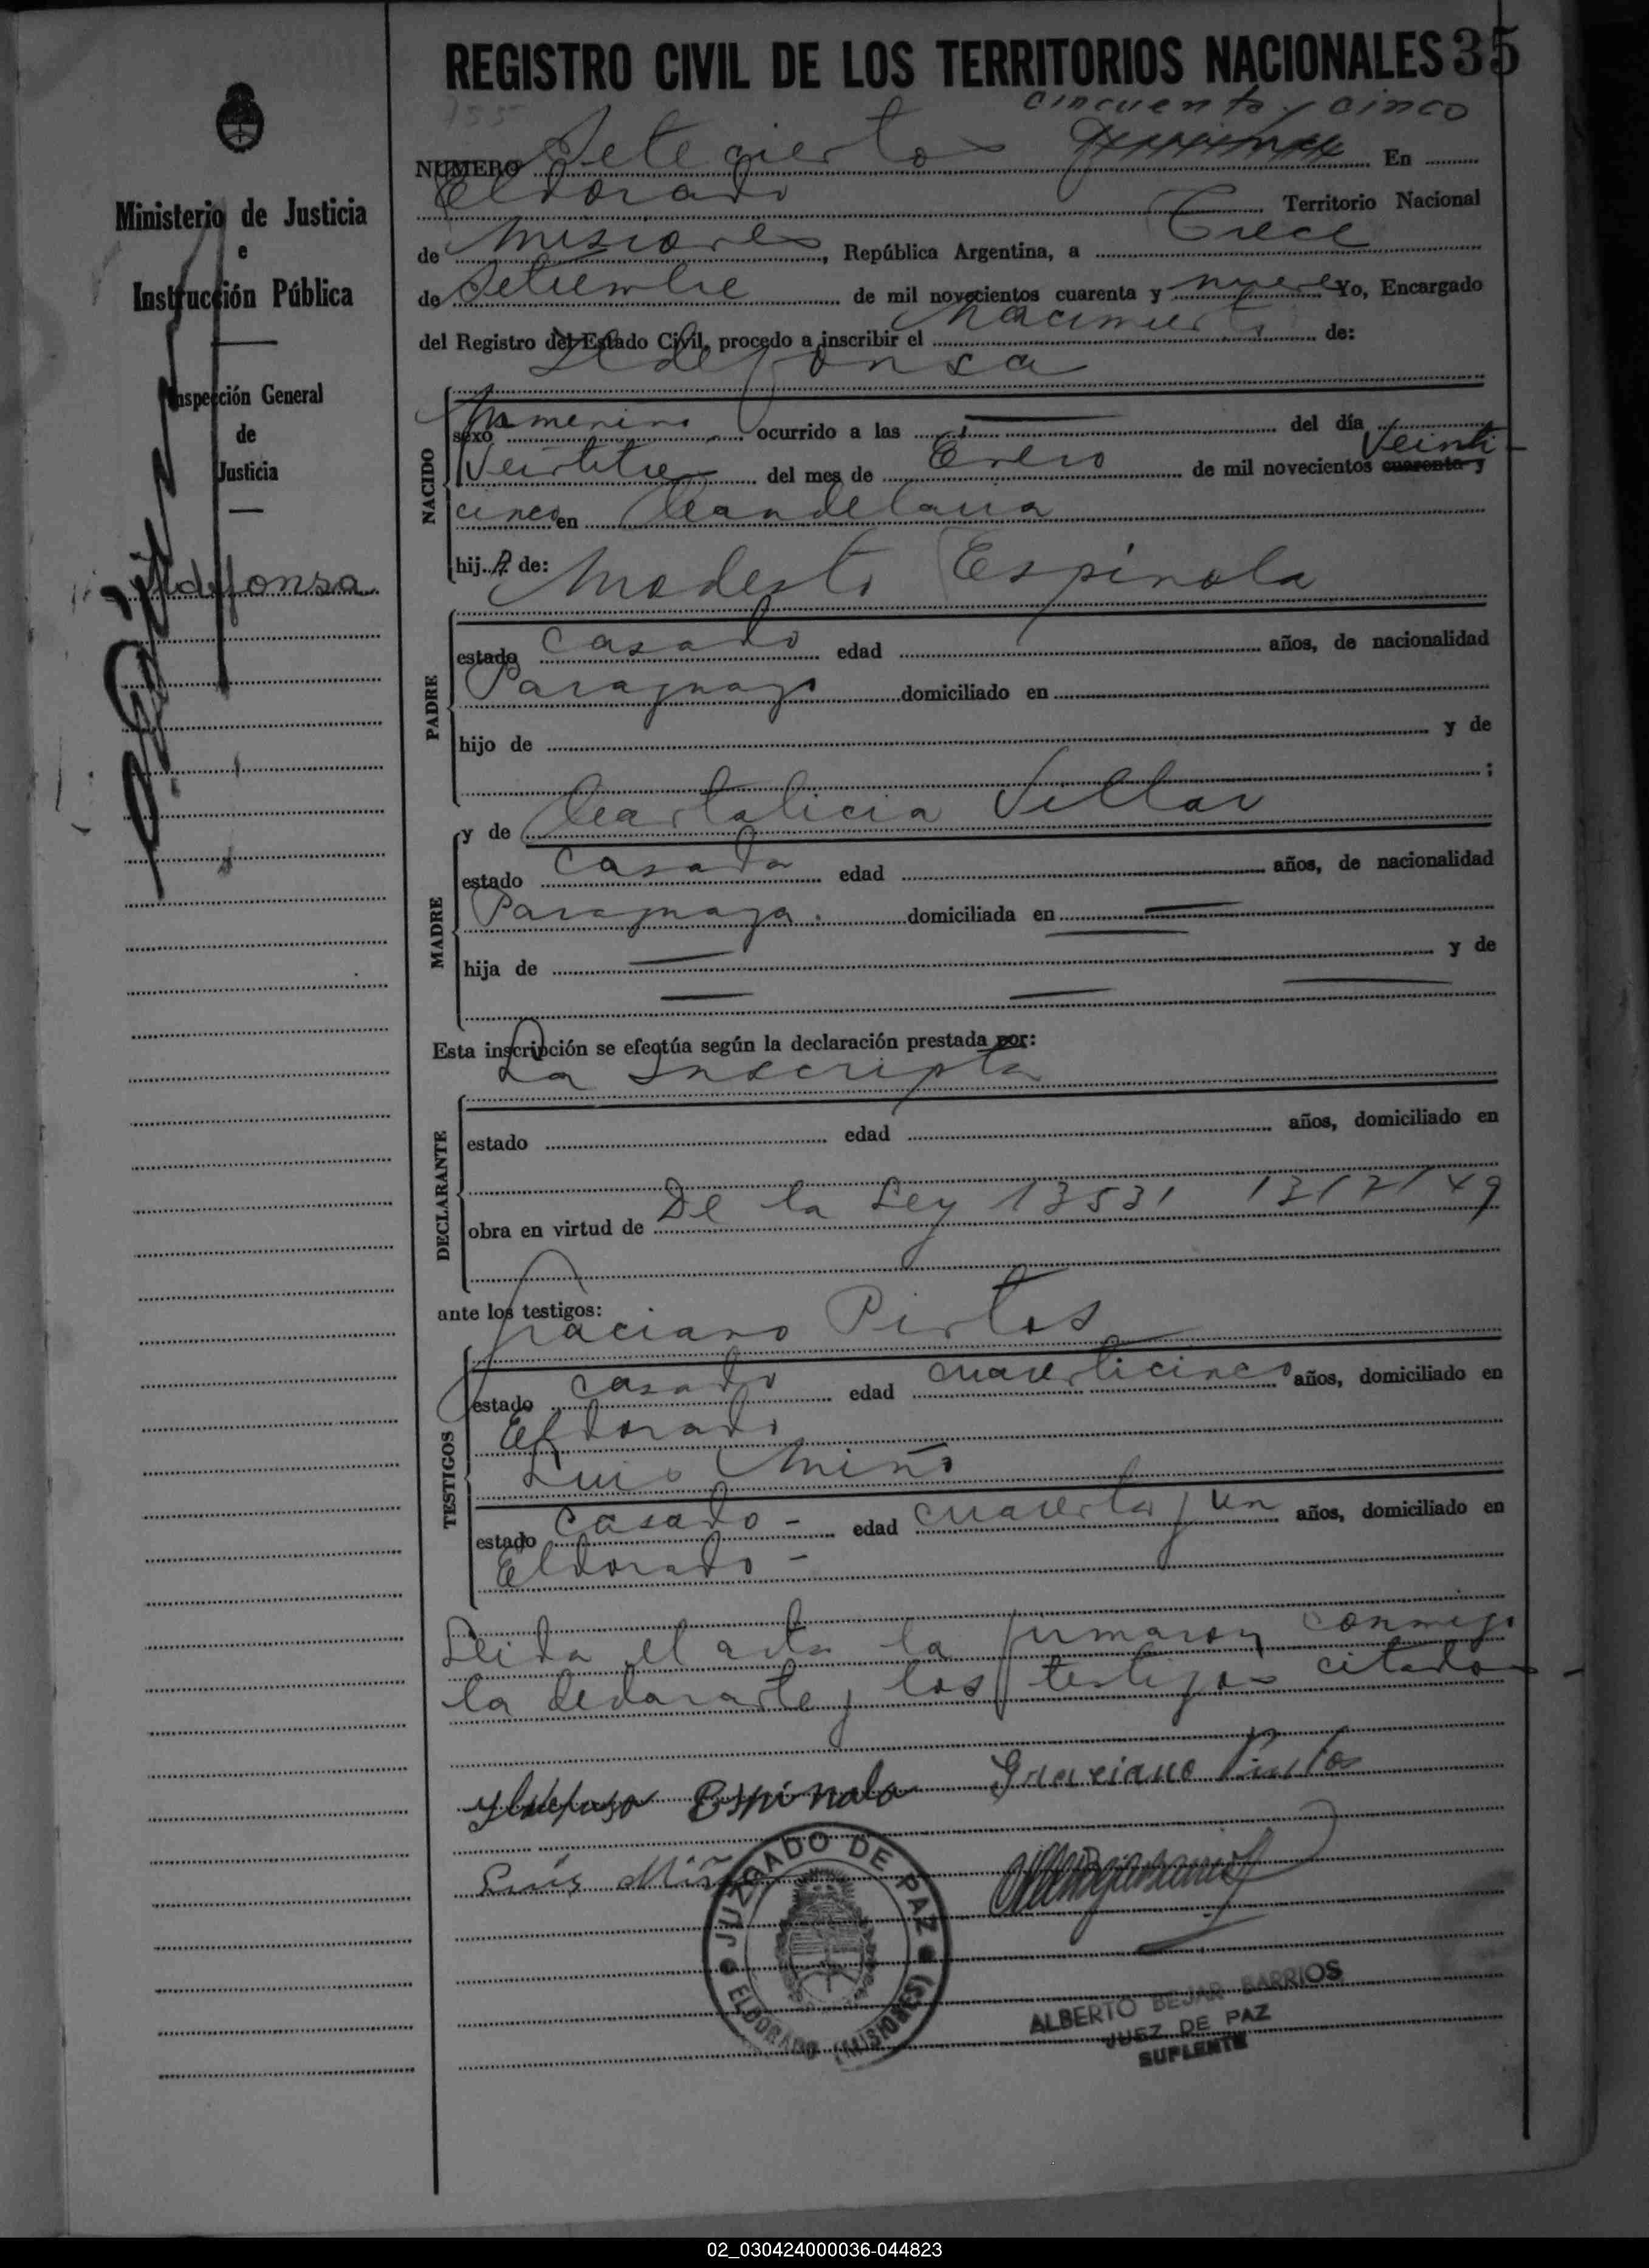 REGISTRO CIVIL DE LOS TERRITORIOS NACIONALES 35
cincuenta y cinco
755
NUMERO Setecientos En
Eldorado Territorio Nacional
de Misiones, República Argentina, a Trece
de Setiembre de mil novecientos cuarenta y nueve Yo, Encargado
del Registro del Estado Civil, procedo a inscribir el nacimiento de:
Ildefonsa
NACIDO
sexo femenino ocurrido a las del día
Veintitres del mes de Enero de mil novecientos cuarenta y Veinti-
cinco en Candelaria
hija de: Modesto Espinola
PADRE
estado casado edad años, de nacionalidad
Paraguayo domiciliado en
hijo de y de
;
MADRE
y de Cantalicia Villar
estado casada edad años, de nacionalidad
Paraguaya. domiciliada en
hija de y de
Esta inscripción se efectúa según la declaración prestada por:
La Inscripta
DECLARANTE
estado edad años, domiciliado en
obra en virtud de De la Ley 13531
ante los testigos:
Graciano Pintos
TESTIGOS
estado casado edad cuarenticinco años, domiciliado en
Eldorado
Luis Miño
estado casado - edad cuarenta y un años, domiciliado en
Eldorado -
Leida el acta la firmaron conmigo
la declarante y los testigos citados -
Espinola Graciano Pintos
Luis Miño
JUZGADO DE PAZ
ELDORADO (MISIONES)
ALBERTO BEJAR BARRIOS
JUEZ DE PAZ
SUPLENTE
Ministerio de Justicia
e
Instrucción Pública
Inspección General
de
Justicia
Ildefonsa
02_030424000036-044823